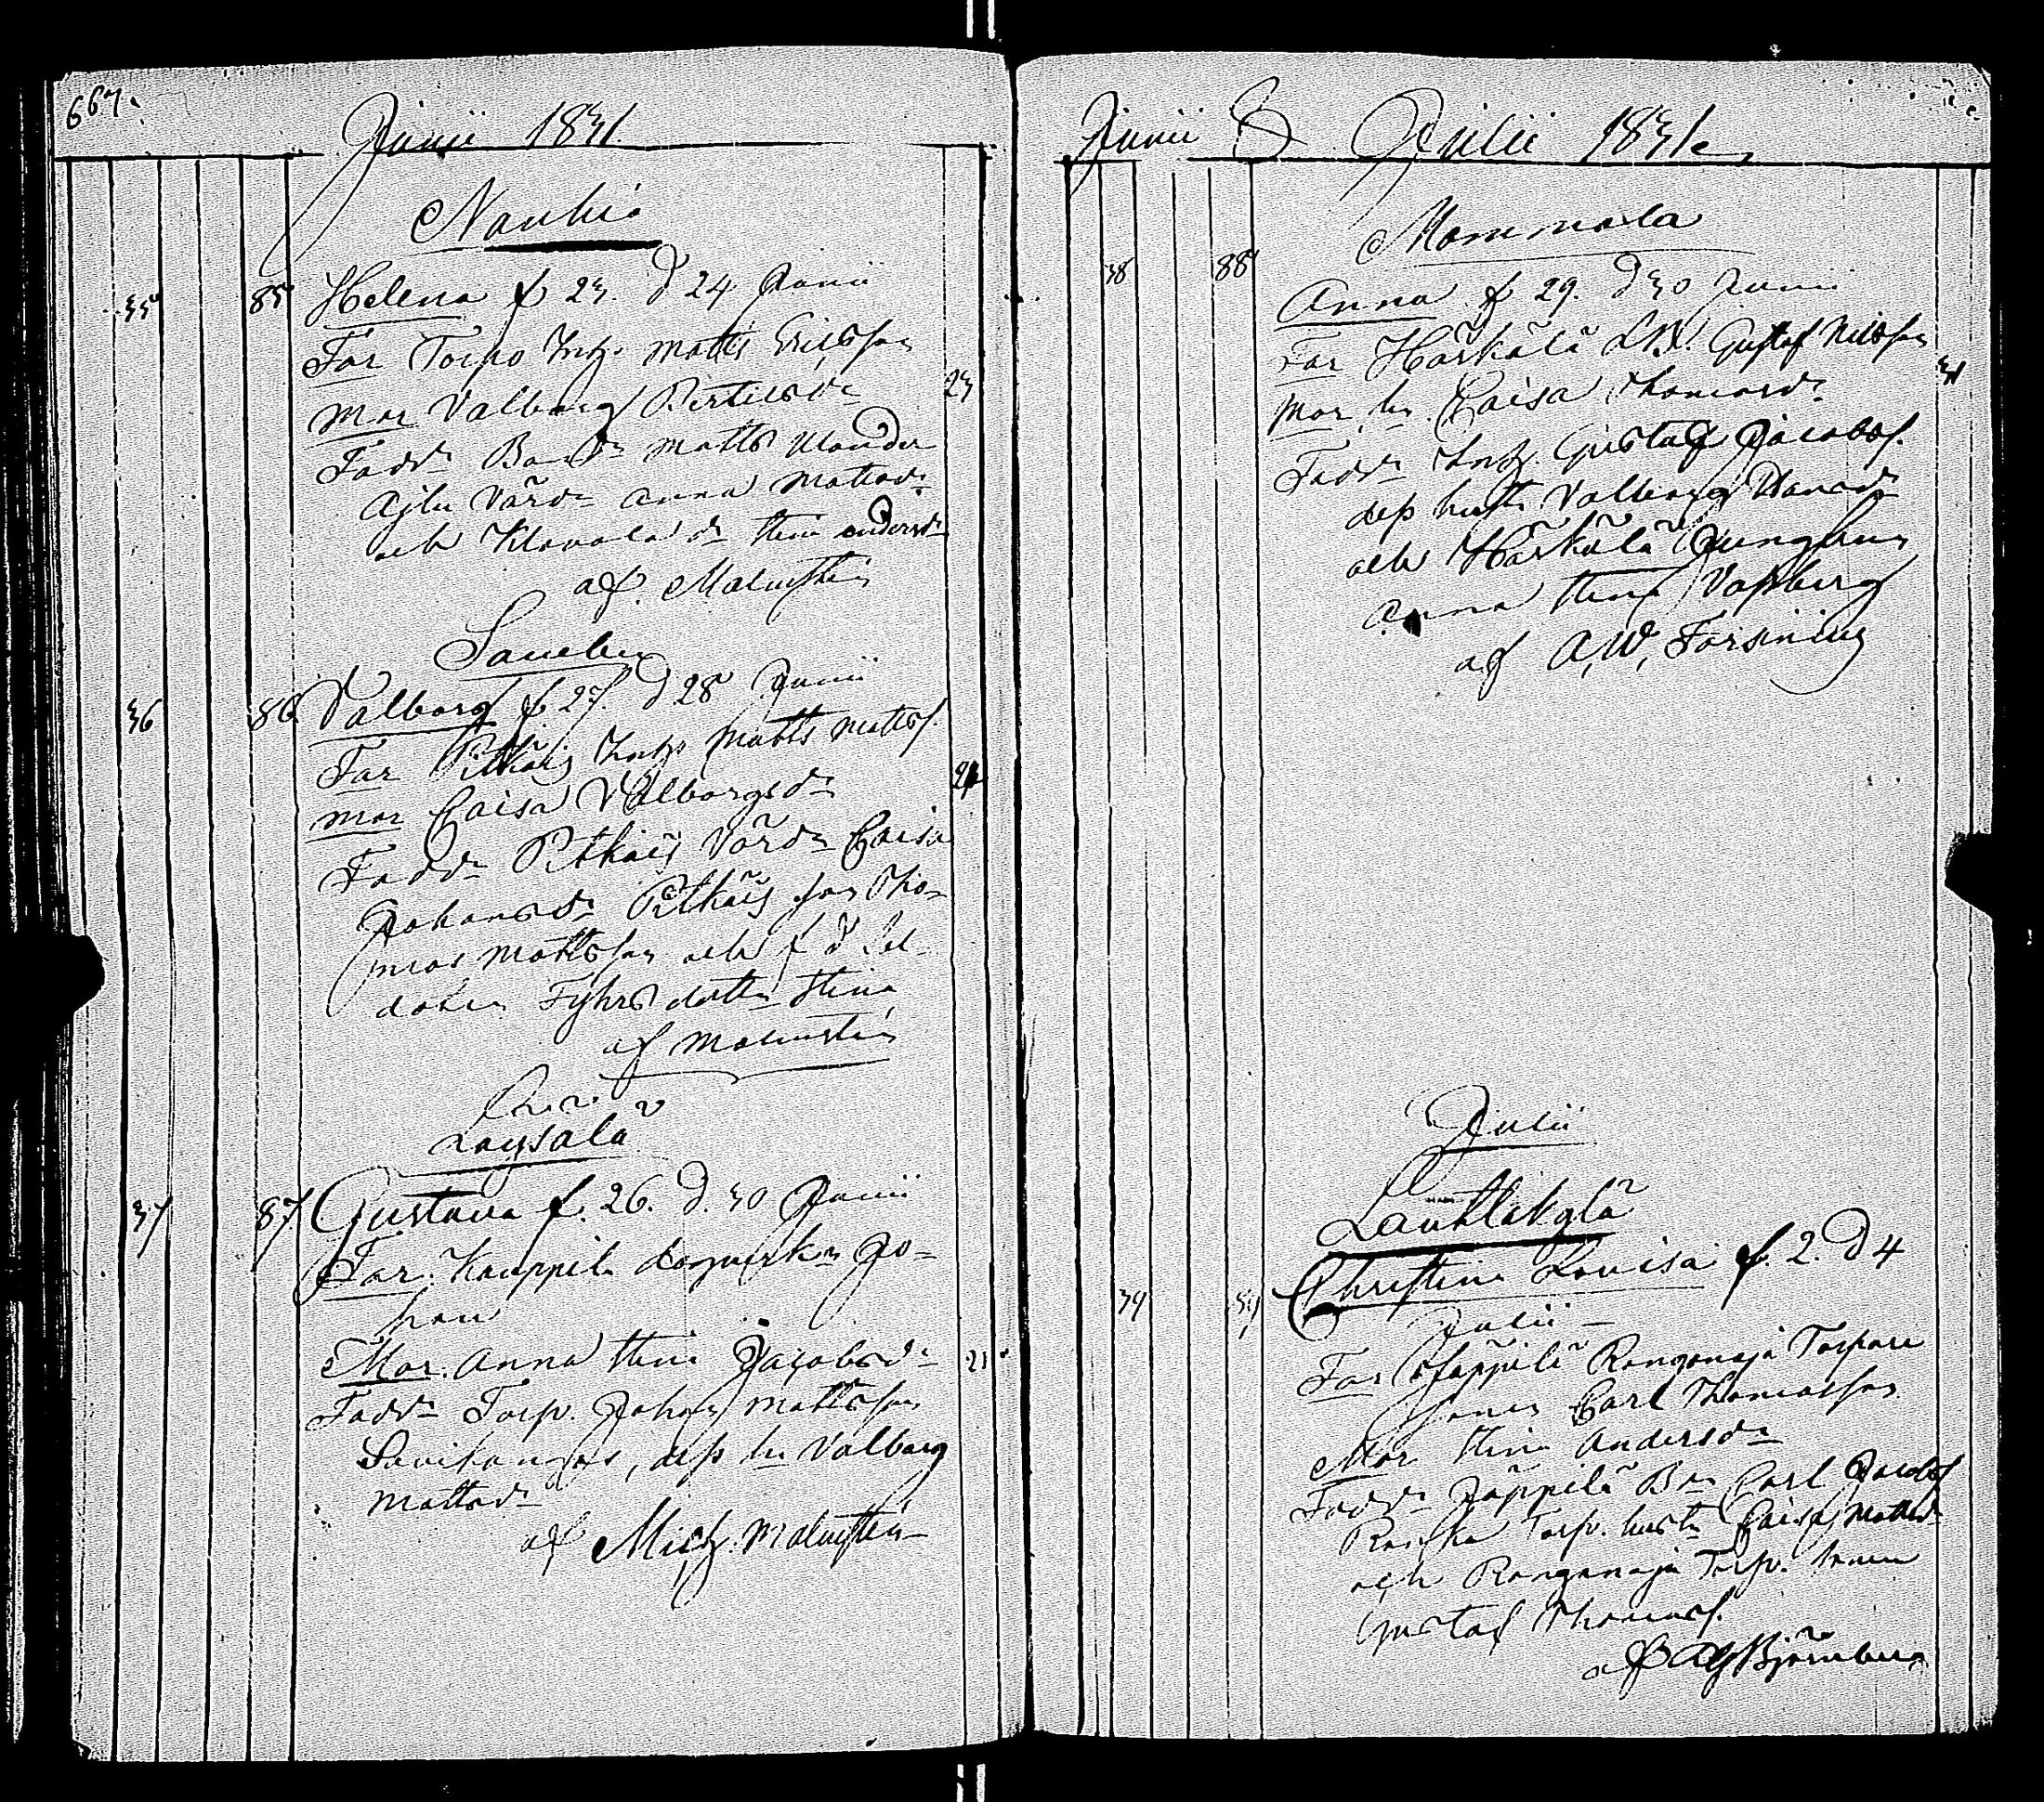 667.
Junii 1831.
Nauhio
35 85 Helena f 23. d 24 Junii
Far Torpo Inh. Matts Ericsson
23
Mor Valborg Bertilsdr
Faddr Matts
Värdr Anna Mattsdr
och dr Stina Andersdr
af Malmsten
36 86 Valborg f 27. d 28 Junii
Far Pitkäis Inh. Matts Mattss.
Mor Caisa Valborgsdr
Faddr Pitkäis Värdr Caisa
Johansdr Pitkäis son Tho-
mas Mattsson och f d Sol-
daten Fyhrs dotter Stina
af Malmsten
Loysalä
37 87 Gustava f. 26. d. 30 Junii
Far. Kauppila dagverkr Jo-
han
Mor. Anna Stina Jacobsdr
Faddr Torp. Johan Mattsson
Savikangas, dess hu Valborg
Mattsdr
af Mich. Malmsten
Junii & Julii 1831.
Mommola
38 88 Anna f 29. d 30 Junii
Far Härkälä Gustaf Nilsson
31
Mor hu. Caisa Thomasdr
Faddr Inh. Gustaf Jacobss.
dess hustr. Valborg
och Härkälä Jungfrun
Anna Stina
af A, W, Forsenius
Julii
Lauttakylä
39 89 Christina Lovisa f. 2. d 4
Julii
Far Jäppilä Ronganoja Torpare
sonen Carl Thomasson
Mor Stina Andersdr
Faddr Jäppilä Br Carl Jacobss
Torp. hustr Caisa Mattsdr
och Ronganoja Torp. sonen
Gustaf Thomass.
af Björnberg